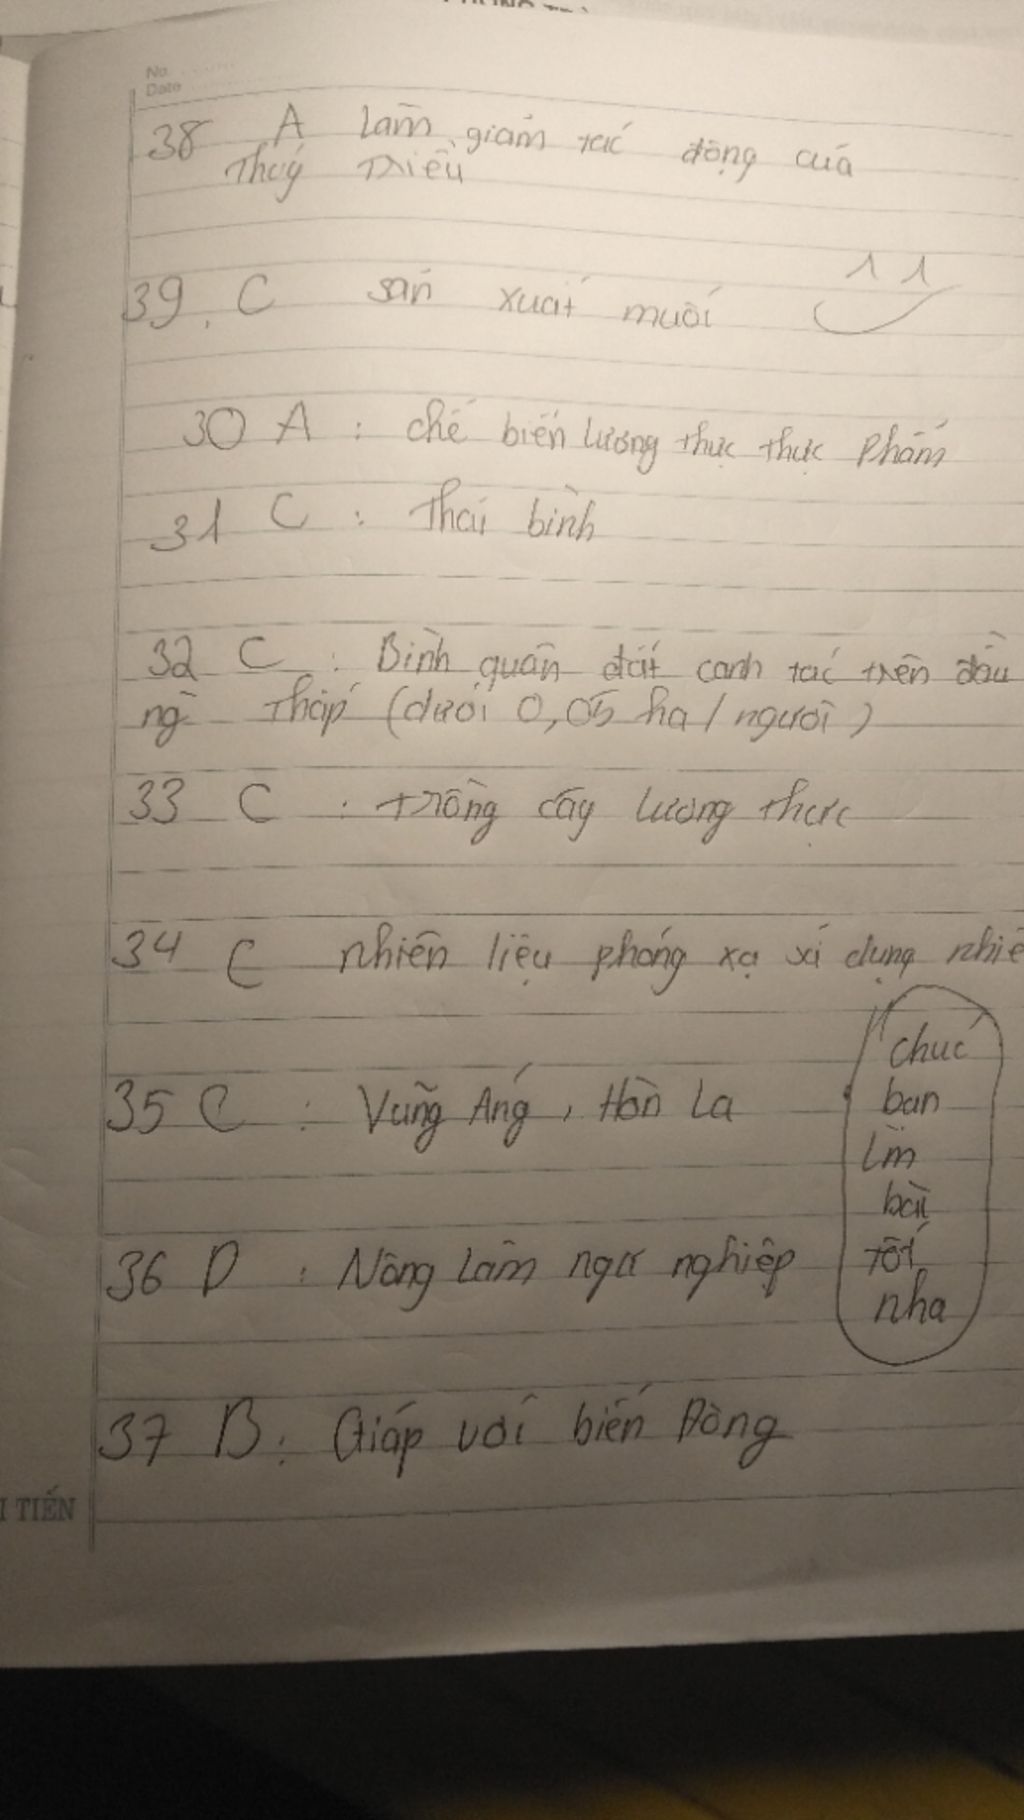 No.
Date
38 A làm giảm tác động của
Thủy Triều
39. C sản xuất muối
30 A : chế biến lương thực thực phẩm
31 C : Thái bình
32 C : Bình quân đất canh tác trên đầu
ng thấp (dưới 0,05 ha/người)
33 C : trồng cây lương thực
34 C nhiên liệu phóng xạ sử dụng
35 C : Vũng Áng, Hòn La
36 D : Nông Lâm ngư nghiệp
37 B : Giáp với biển Đông
chúc
bạn
làm
bài
tốt
nha
TIẾN